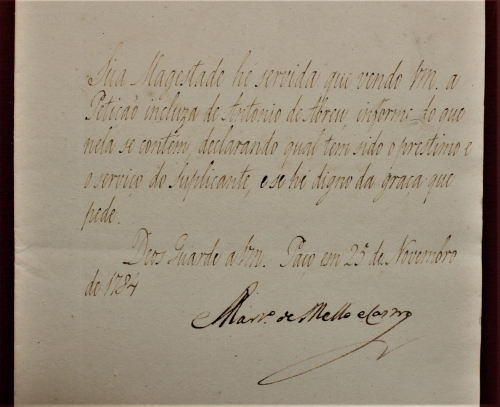 Sua Magestade he servida que vendo Vm. a
Petição incluza de Antonio de Abreu, informe do que
nela se contém, declarando qual tem sido o prestimo e
o serviço do Suplicante, e se hé digno da graça que
pede.
Deos Guarde a Vm. Paço em 25 de Novembro
de 1784
Mart.º de Mello e Castro